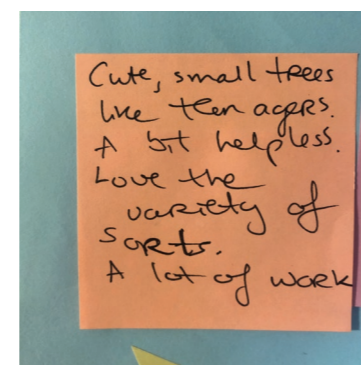 Cute, small trees
like teenagers.
A bit helpless.
Love the
variety of
sorts.
A lot of work